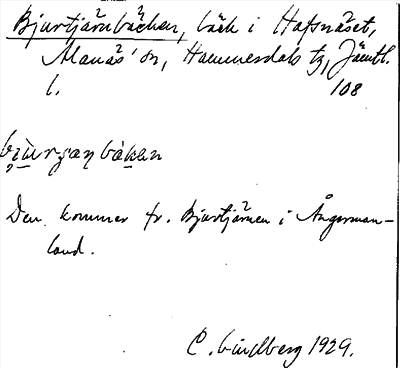 Bjurtjärnbäcken, bäck i Hafsnäset,
Alanäs' sn, Hammerdals tg, Jämtl.
l. 108
Den kommer fr. Bjurtjärnen i Ångerman-
land.
C. Lindberg 1929.